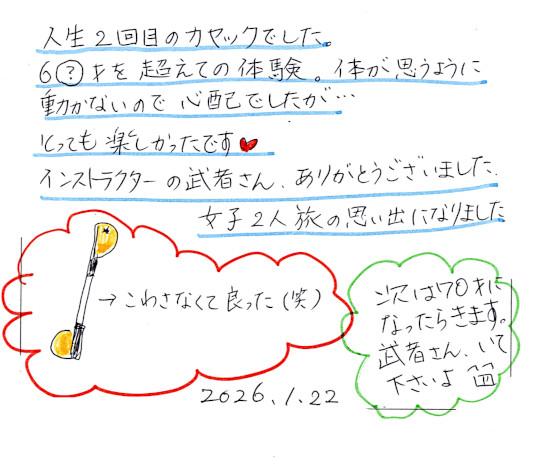 人生2回目のカヤックでした。
6?才を超えての体験。体が思うように
動かないので心配でしたが…
とっても楽しかったです
インストラクターの武者さん、ありがとうございました。
女子2人旅の思い出になりました
→こわさなくて良った(笑)
次は70才に
なったらきます。
武者さん、いて
下さいよ
2026.1.22